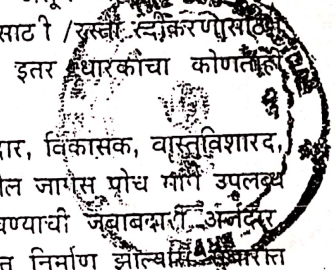 साठी /रस्ता रूंदीकरणासाठी
इतर धारकांचा कोणताही
दार, विकासक, वास्तुविशारद,
ील जागेस पोच मार्ग उपलब्ध
वण्याची जबाबदारी अर्जदार
त निर्माण झाल्यास